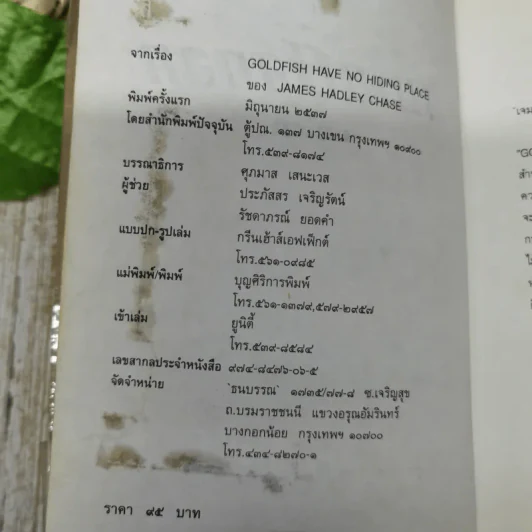 จากเรื่อง GOLDFISH HAVE NO HIDING PLACE
ของ JAMES HADLEY CHASE
พิมพ์ครั้งแรก มิถุนายน ๒๕๓๗
โดยสำนักพิมพ์ปัจจุบัน ตู้ปณ. ๑๓๗ บางเขน กรุงเทพฯ ๑๐๙๐๐
โทร.๕๓๙-๘๑๗๔
บรรณาธิการ ศุภมาส เสนะเวส
ผู้ช่วย ประภัสสร เจริญรัตน์
รัชดาภรณ์ ยอดคำ
แบบปก-รูปเล่ม กรีนเฮ้าส์เอฟเฟ็กต์
โทร.๕๖๑-๐๙๘๕
แม่พิมพ์/พิมพ์ บุญศิริการพิมพ์
โทร.๕๖๑-๑๓๗๙,๕๗๙-๒๙๕๗
เข้าเล่ม ยูนิตี้
โทร.๕๓๙-๘๕๘๔
เลขสากลประจำหนังสือ ๙๗๔-๘๔๗๖-๐๖-๕
จัดจำหน่าย 'ธนบรรณ' ๑๗๓๕/๗๗-๘ ซ.เจริญสุข
ถ.บรมราชชนนี แขวงอรุณอัมรินทร์
บางกอกน้อย กรุงเทพฯ ๑๐๗๐๐
โทร.๔๓๔-๘๒๗๐-๑
ราคา ๙๕ บาท